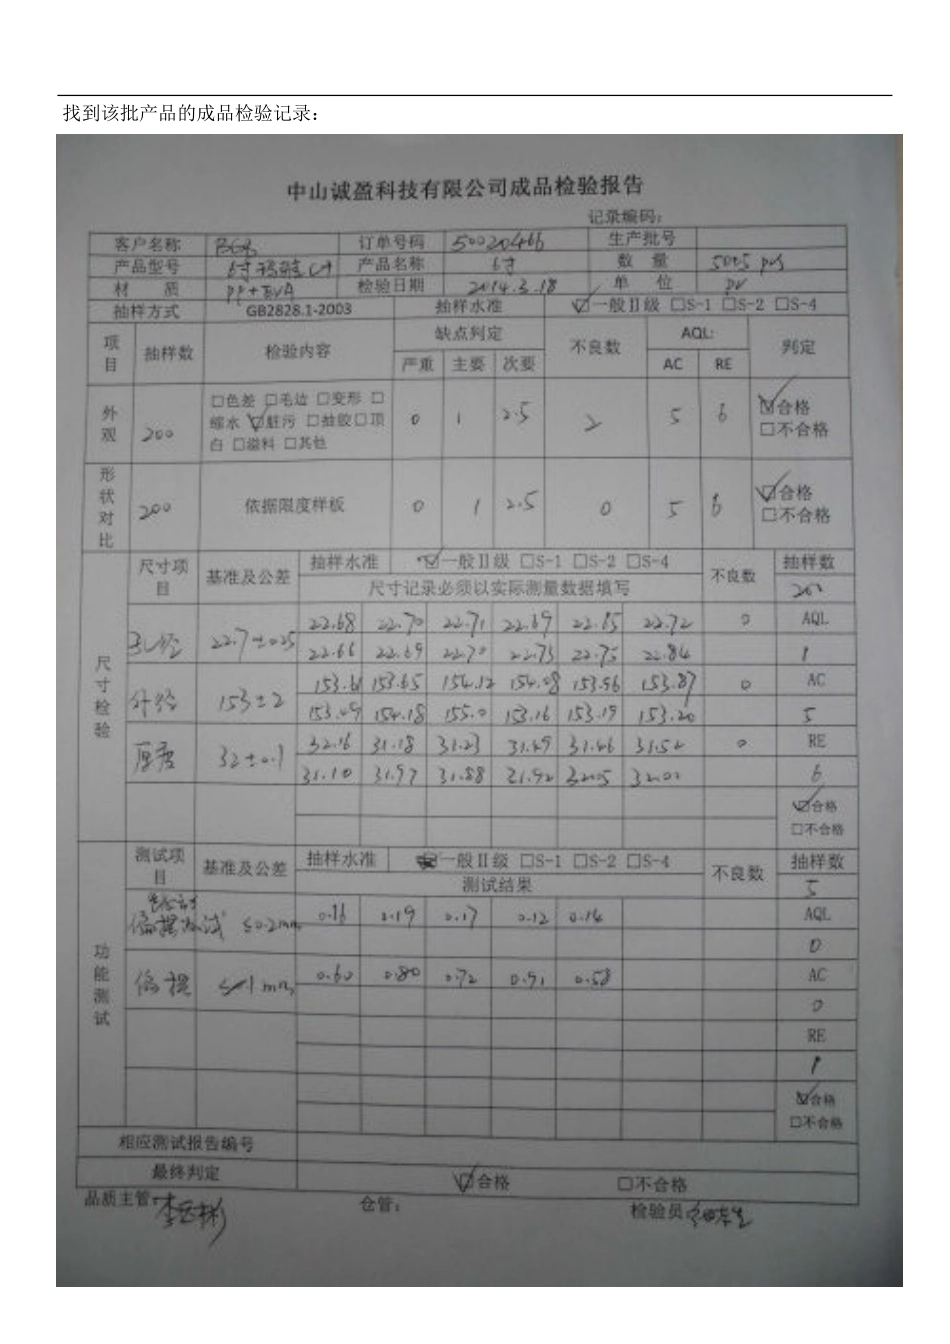 找到该批产品的成品检验记录：
中山诚盈科技有限公司成品检验报告
记录编码：
客户名称 订单号码 50020466 生产批号
产品型号 产品名称 6寸 数 量 5005 pcs
材 质 PP+EVA 检验日期 2014.3.18 单 位
抽样方式 GB2828.1-2003 抽样水准 ☑一般Ⅱ级 □S-1 □S-2 □S-4
项目 抽样数 检验内容 缺点判定 不良数 AQL: 判定
严重 主要 次要 AC RE
外观 200 □色差 □毛边 □变形 □缩水 ☑脏污 □抽胶 □顶白 □溢料 □其他 0 1 2.5 2 5 6 ☑合格 □不合格
形状对比 200 依据限度样板 0 1 2.5 0 5 6 ☑合格 □不合格
尺寸检验
尺寸项目 基准及公差 抽样水准 ☑一般Ⅱ级 □S-1 □S-2 □S-4 不良数 抽样数
尺寸记录必须以实际测量数据填写 200
孔径 22.7±0.25 22.68 22.70 22.71 22.69 22.65 22.72 0 AQL
22.66 22.69 22.70 22.73 22.75 22.84 1
外径 153±2 153.61 153.65 154.12 154.08 153.56 153.87 0 AC
153.09 154.18 155.0 153.16 153.19 153.20 5
厚度 32±0.1 32.16 31.18 31.23 31.49 31.46 31.52 0 RE
31.10 31.97 31.88 31.92 32.05 32.02 6
☑合格
□不合格
功能测试
测试项目 基准及公差 抽样水准 一般Ⅱ级 □S-1 □S-2 □S-4 不良数 抽样数
测试结果 5
偏摆测试 ≤0.2mm 0.16 0.19 0.17 0.12 0.14 AQL
0
偏摆 ≤1mm 0.60 0.80 0.72 0.91 0.58 AC
0
RE
1
☑合格
□不合格
相应测试报告编号
最终判定 ☑合格 □不合格
品质主管： 仓管： 检验员：